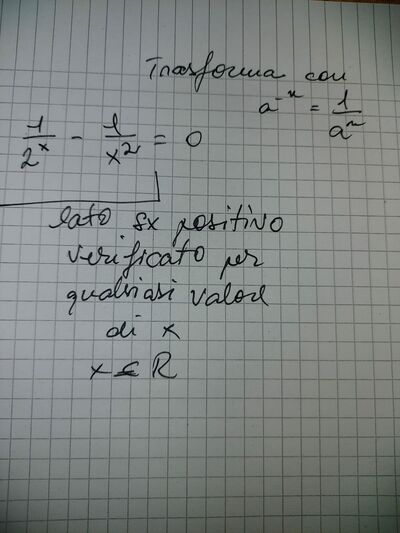 Trasforma con
a⁻ⁿ = 1/aⁿ
1/2ˣ - 1/x² = 0
lato sx positivo
verificato per
qualsiasi valore
di x
x ∈ R